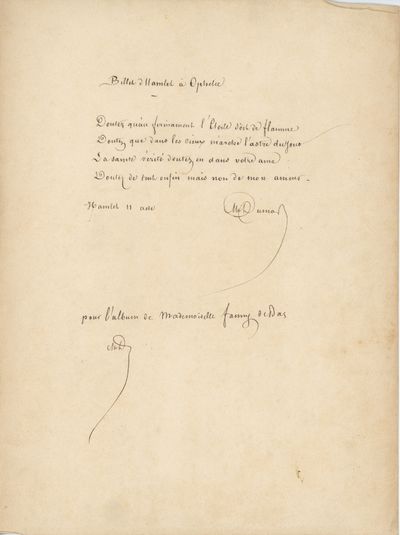 Billet d'Hamlet à Ophelie
Doutez qu'au firmament l'Etoile soit de flamme
Doutez que dans les cieux marche l'astre du jour
La sainte vérité doutez en dans votre ame
Doutez de tout enfin mais non de mon amour.
Hamlet 11 acte
Dumas
pour l'album de Mademoiselle Fanny
AD